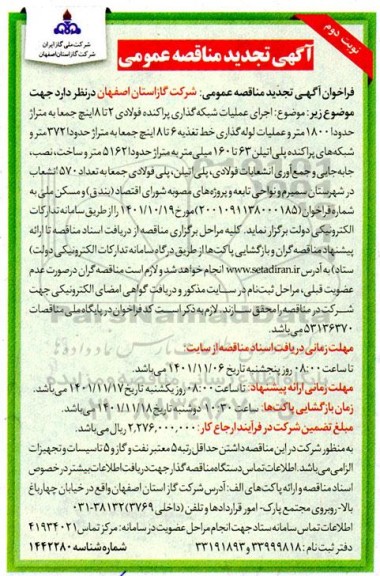 نوبت دوم
شرکت ملی گاز ایران
شرکت گاز استان اصفهان
آگهی تجدید مناقصه عمومی
فراخوان آگهی تجدید مناقصه عمومی: شرکت گاز استان اصفهان در نظر دارد جهت
موضوع زیر: موضوع: اجرای عملیات شبکه گذاری پراکنده فولادی ۲ تا ۸ اینچ جمعا به متراژ
حدودا ۱۸۰۰ متر و عملیات لوله گذاری خط تغذیه ۶ تا ۸ اینچ جمعا به متراژ حدودا ۳۷۲ متر و
شبکه های پراکنده پلی اتیلن ۶۳ تا ۱۶۰ میلی متر به متراژ حدودا ۵۱۶۲ متر و ساخت، نصب،
جابه جایی و جمع آوری انشعابات فولادی، پلی اتیلن، پلی فولادی جمعا به تعداد ۵۷۰ انشعاب
در شهرستان سمیرم و نواحی تابعه و پروژه های مصوبه شورای اقتصاد (بندق) و مسکن ملی به
شماره فراخوان (۲۰۰۱۰۹۱۱۳۸۰۰۰۱۸۵) مورخ ۱۴۰۱/۱۰/۱۹ را از طریق سامانه تدارکات
الکترونیکی دولت برگزار نماید. کلیه مراحل برگزاری مناقصه از دریافت اسناد مناقصه تا ارائه
پیشنهاد مناقصه گران و بازگشایی پاکت ها از طریق درگاه سامانه تدارکات الکترونیکی دولت)
ستاد) به آدرس www.setadiran.ir انجام خواهد شد و لازم است مناقصه گران در صورت عدم
عضویت قبلی، مراحل ثبت نام در سایت مذکور و دریافت گواهی امضای الکترونیکی جهت
شرکت در مناقصه را محقق سازند. لازم به ذکر است کد فراخوان در پایگاه ملی مناقصات
۵۳۱۳۶۳۷۰ می باشد.
مهلت زمانی دریافت اسناد مناقصه از سایت:
تا ساعت ۰۸:۰۰ روز پنجشنبه تاریخ ۱۴۰۱/۱۱/۰۶ می باشد.
مهلت زمانی ارائه پیشنهاد: تا ساعت ۰۸:۰۰ روز یکشنبه تاریخ ۱۴۰۱/۱۱/۱۷ می باشد.
زمان بازگشایی پاکت ها: ساعت ۱۰:۳۰ دوشنبه تاریخ ۱۴۰۱/۱۱/۱۸ می باشد.
مبلغ تضمین شرکت در فرآیند ارجاع کار: ۲,۲۷۶,۰۰۰,۰۰۰ ریال می باشد.
به منظور شرکت در این مناقصه داشتن حداقل رتبه ۵ معتبر نفت و گاز و ۵ تاسیسات و تجهیزات
الزامی می باشد. اطلاعات تماس دستگاه مناقصه گذار جهت دریافت اطلاعات بیشتر در خصوص
اسناد مناقصه و ارائه پاکت های الف: آدرس شرکت گاز استان اصفهان واقع در خیابان چهارباغ
بالا- روبروی مجتمع پارک- امور قراردادها و تلفن (داخلی ۳۷۶۹) ۳۸۱۳۲-۰۳۱
اطلاعات تماس سامانه ستاد جهت انجام مراحل عضویت در سامانه: مرکز تماس ۰۲۱-۴۱۹۳۴
دفتر ثبت نام: ۳۳۹۹۹۸۱۸ و ۳۳۱۹۱۸۹۳ شماره شناسه ۱۴۴۲۲۸۰